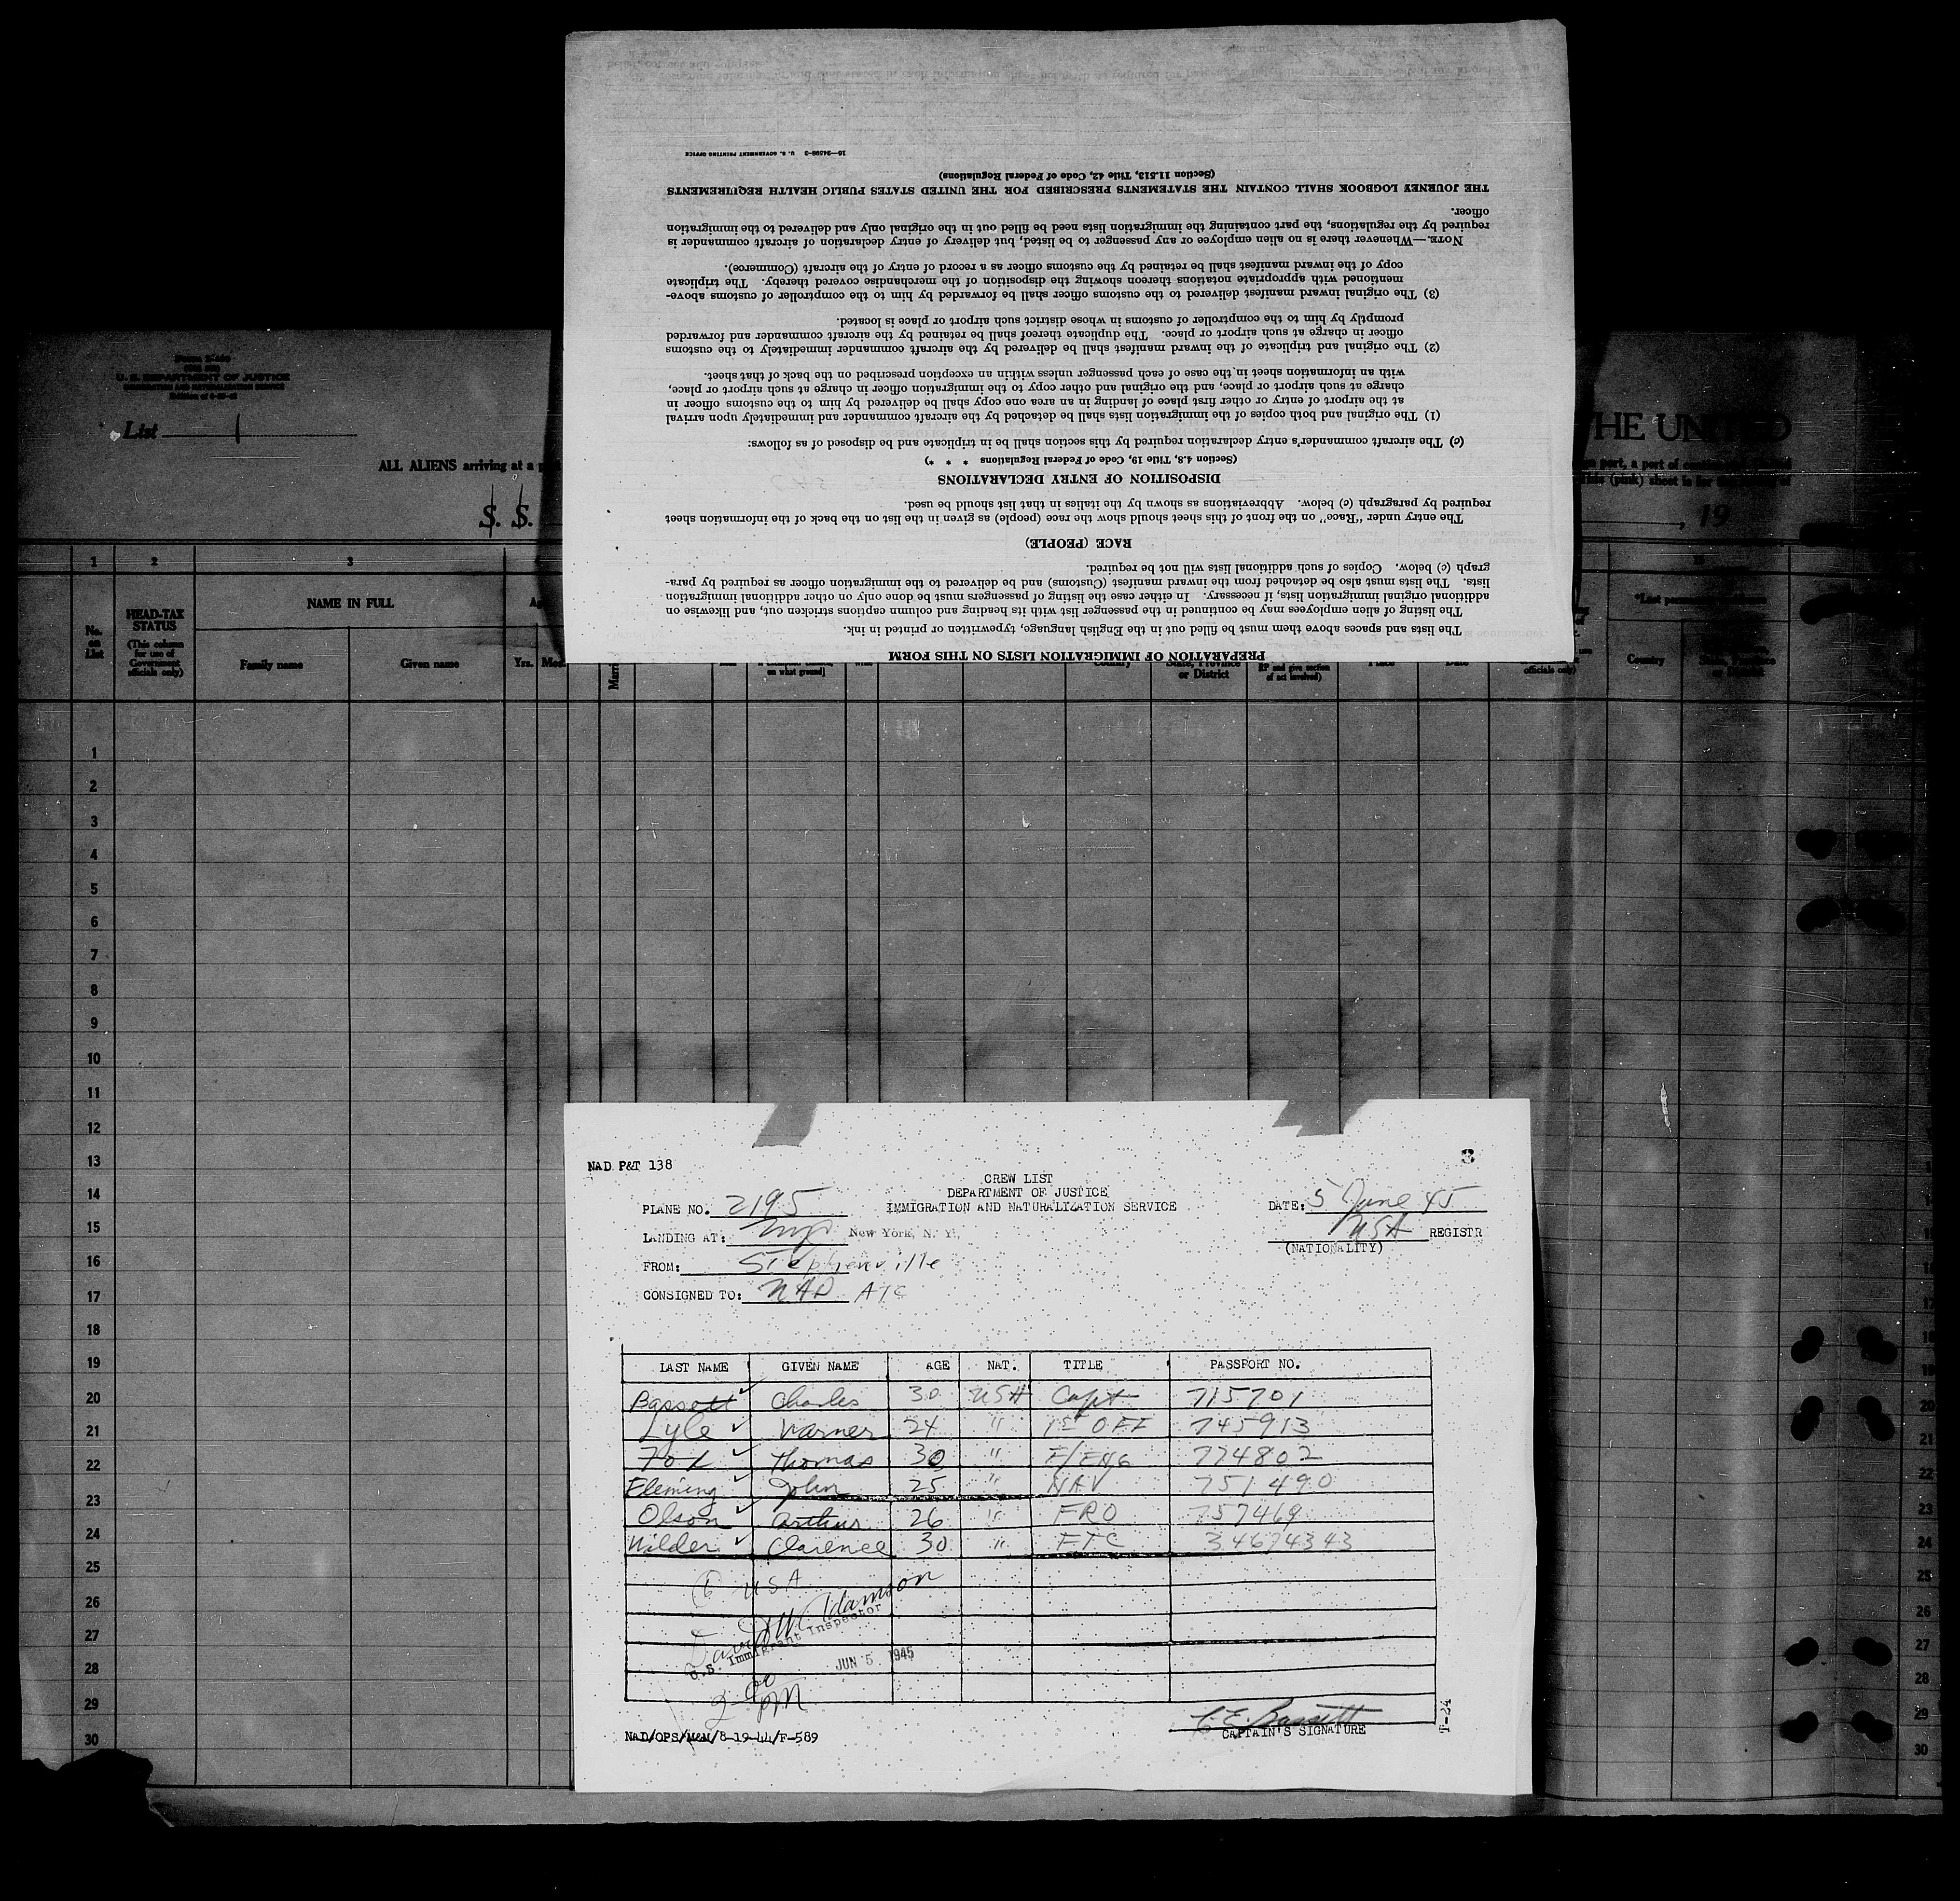 THE JOURNEY LOGBOOK SHALL CONTAIN THE STATEMENTS PRESCRIBED FOR THE UNITED STATES PUBLIC HEALTH REQUIREMENTS
PREPARATION OF IMMIGRATION LISTS ON THIS FORM
The lists and spaces above them must be filled out in the English language, typewritten or printed in ink.
The listing of alien employees may be continued in the passenger list with its heading and column captions stricken out, and likewise on
additional original immigration lists, if necessary. In either case the listing of passengers must be done only on other additional immigration
lists. The lists must also be detached from the inward manifest (Customs) and be delivered to the immigration officer as required by para-
graph (c) below. Copies of such additional lists will not be required.
RACE (PEOPLE)
The entry under "Race" on the front of this sheet should show the race (people) as given in the list on the back of the information sheet
required by paragraph (c) below. Abbreviations as shown by the italics in that list should be used.
DISPOSITION OF ENTRY DECLARATIONS
(Section 4.8, Title 19, Code of Federal Regulations * * *)
(c) The aircraft commander's entry declaration required by this section shall be in triplicate and be disposed of as follows:
(1) The original and both copies of the immigration lists shall be detached by the aircraft commander and immediately upon arrival
at the airport of entry or other first place of landing in an area one copy shall be delivered by him to the customs officer in
charge at such airport or place, and the original and other copy to the immigration officer in charge at such airport or place,
with an information sheet in the case of each passenger unless within an exception prescribed on the back of that sheet.
(2) The original and triplicate of the inward manifest shall be delivered by the aircraft commander immediately to the customs
officer in charge at such airport or place. The duplicate thereof shall be retained by the aircraft commander and forwarded
promptly by him to the comptroller of customs in whose district such airport or place is located.
(3) The original inward manifest delivered to the customs officer shall be forwarded by him to the comptroller of customs above-
mentioned with appropriate notations thereon showing the disposition of the merchandise covered thereby. The triplicate
copy of the inward manifest shall be retained by the customs officer as a record of entry of the aircraft (Commerce).
NOTE.—Whenever there is no alien employee or any passenger to be listed, but delivery of entry declaration of aircraft commander is
required by the regulations, the part containing the immigration lists need be filled out in the original only and delivered to the immigration
officer.
(Section 11.513, Title 42, Code of Federal Regulations)
16—34598-3 U. S. GOVERNMENT PRINTING OFFICE
U. S. DEPARTMENT OF JUSTICE
List 1
THE UNITED
ALL ALIENS arriving at a
S. S.
, 19
1 2 3
No. on List
HEAD-TAX STATUS
(This column for use of Government officials only)
NAME IN FULL
Family name Given name Yrs.
or District
Country
1
2
3
4
5
6
7
8
9
10
11
12
13
14
15
16
17
18
19
20
21
22
23
24
25
26
27
28
29
30
NAD P&T 138
3
CREW LIST
DEPARTMENT OF JUSTICE
IMMIGRATION AND NATURALIZATION SERVICE
PLANE NO. 2195
DATE: 5 June 45
LANDING AT: New York, N. Y.
USA REGISTR
(NATIONALITY)
FROM: Stephenville
CONSIGNED TO: NAD ATC
LAST NAME GIVEN NAME AGE NAT. TITLE PASSPORT NO.
Bassett Charles 30 USA Capt 715701
Lyle Warner 24 " 1st OFF 745913
Fox Thomas 30 " F/ENG 774802
Fleming John 25 " NAV 751490
Olson Arthur 26 " FRO 757469
Wilder Clarence 30 " FTC 34674343
6 USA
U.S. Immigrant Inspector
JUN 5 1945
2 00 PM
C E Bassett
CAPTAIN'S SIGNATURE
NAD/OPS/M&M/8-19-44/F-589
F-24